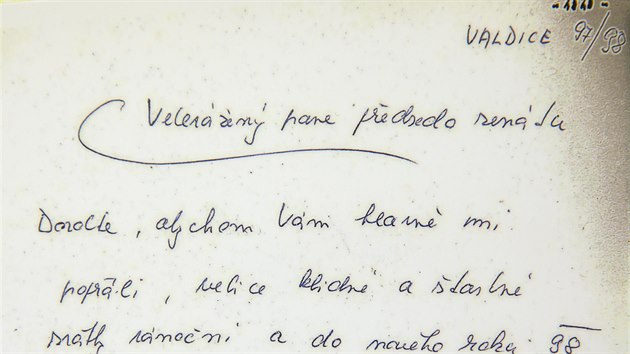 VALDICE 97/98
Velevážený pane předsedo senátu
Dovolte, abychom Vám hlavně mi
popřáli, velice klidné a šťastné
svátky vánoční a do nového roku 98